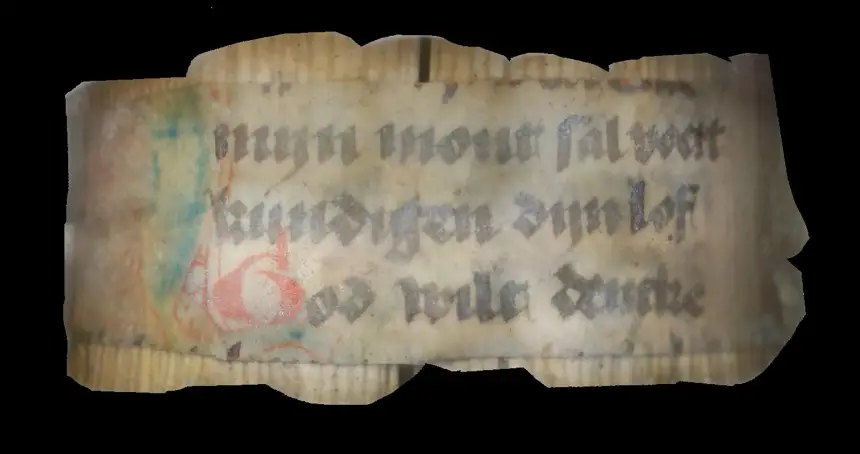 mijn mont sal voert
kundigen dijn lof
God wilt dencke